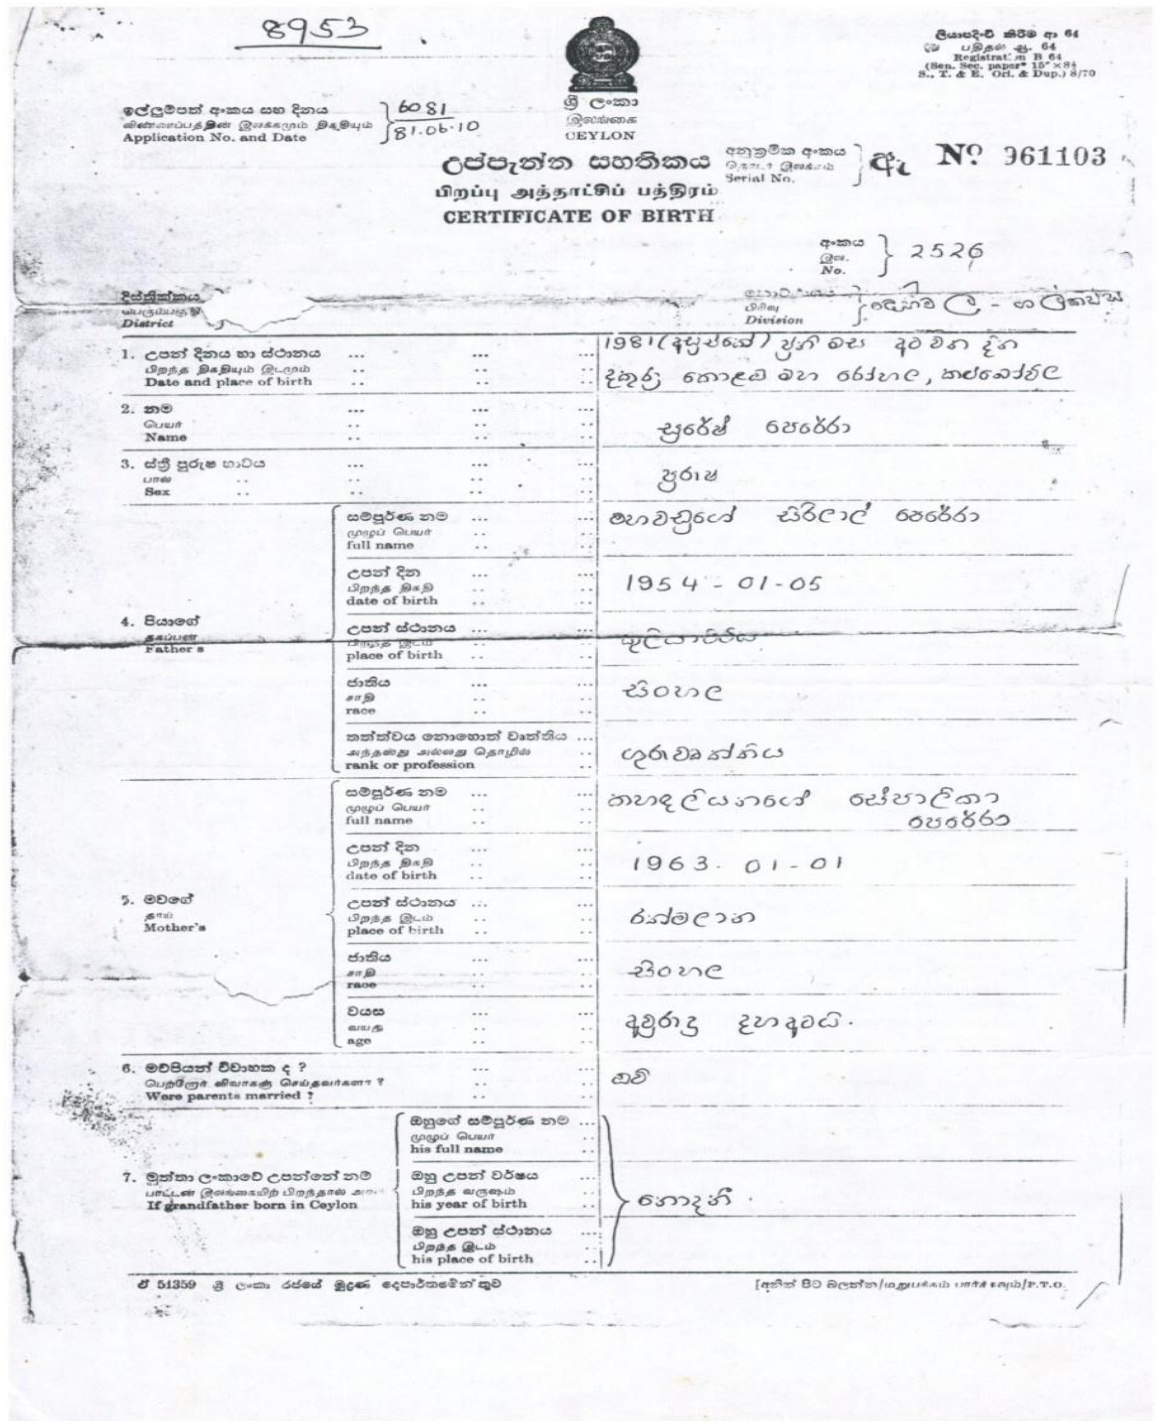 8953
ලියාපදිංචි කිරීම ආ 64
பதிதல் ஆ. 64
Registration B 64
(Sen. Sec. paper* 15" × 8½
S., T. & E. Ori. & Dup.) 8/70
ඉල්ලුම්පත් අංකය සහ දිනය
விண்ணப்பத்தின் இலக்கமும் திகதியும்
Application No. and Date
6081
81.06.10
ශ්‍රී ලංකා
இலங்கை
CEYLON
උප්පැන්න සහතිකය
பிறப்பு அத்தாட்சிப் பத்திரம்
CERTIFICATE OF BIRTH
අනුක්‍රමික අංකය
தொடர் இலக்கம்
Serial No.
ඇ No. 961103
අංකය
இல.
No.
2526
දිස්ත්‍රික්කය
District
பிரிவு
Division
දෙහිවල - ගල්කිස්ස
1. උපන් දිනය හා ස්ථානය
பிறந்த திகதியும் இடமும்
Date and place of birth
1981 (අසූඑකේ) ජුනි මස අට වන දින
දකුණු කොළඹ මහ රෝහල, කළුබෝවිල
2. නම
பெயர்
Name
සුරේෂ් පෙරේරා
3. ස්ත්‍රී පුරුෂ භාවය
பால்
Sex
පුරුෂ
4. පියාගේ
தகப்பன்
Father's
සම්පූර්ණ නම
முழுப் பெயர்
full name
මහවඩුගේ සිරිලාල් පෙරේරා
උපන් දින
பிறந்த திகதி
date of birth
1954 - 01-05
උපන් ස්ථානය
பிறந்த இடம்
place of birth
කුලියාපිටිය
ජාතිය
சாதி
race
සිංහල
තත්ත්වය නොහොත් වෘත්තිය
அந்தஸ்து அல்லது தொழில்
rank or profession
ගුරු වෘත්තිය
5. මවගේ
தாய்
Mother's
සම්පූර්ණ නම
முழுப் பெயர்
full name
කහඳලියනගේ සේපාලිකා
පෙරේරා
උපන් දින
பிறந்த திகதி
date of birth
1963. 01-01
උපන් ස්ථානය
பிறந்த இடம்
place of birth
රත්මලාන
ජාතිය
சாதி
race
සිංහල
වයස
வயது
age
අවුරුදු දහඅටයි.
6. මව්පියන් විවාහක ද ?
பெற்றோர் விவாகஞ் செய்தவர்களா ?
Were parents married ?
ඔව්
7. මුත්තා ලංකාවේ උපන්නේ නම්
பாட்டன் இலங்கையிற் பிறந்தால்
If grandfather born in Ceylon
ඔහුගේ සම්පූර්ණ නම
முழுப் பெயர்
his full name
ඔහු උපන් වර්ෂය
பிறந்த வருஷம்
his year of birth
ඔහු උපන් ස්ථානය
பிறந்த இடம்
his place of birth
නොදනී.
ඒ 51359 ශ්‍රී ලංකා රජයේ මුද්‍රණ දෙපාර්තමේන්තුව
[අනික් පිට බලන්න/மறுபக்கம் பார்க்கவும்/P.T.O.